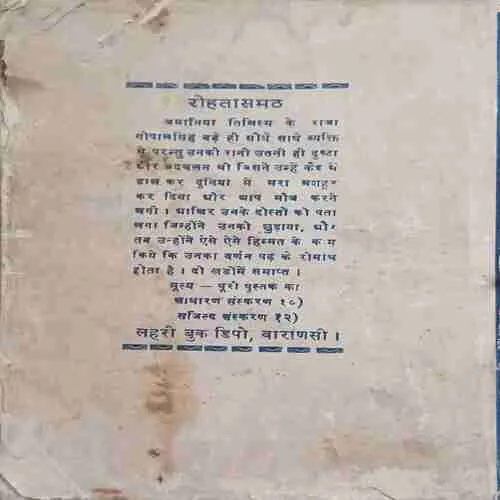 रोहतासमठ
जमानिया तिलिस्म के राजा
गोपालसिंह बड़े ही सीधे साधे व्यक्ति
थे परन्तु उनकी रानी उतनी ही दुष्टा
और बदचलन थी जिसने उन्हें कैद में
डाल कर दुनिया में मरा मशहूर
कर दिया और आप मौज करने
लगी । आखिर उनके दोस्तों को पता
लगा जिन्होंने उनको छुड़ाया, और
तब उन्होंने ऐसे ऐसे हिम्मत के काम
किये कि उनका वर्णन पढ़ के रोमांच
होता है । दो खंडोंमें समाप्त ।
मूल्य — पूरी पुस्तक का
साधारण संस्करण १०)
सजिल्द संस्करण १२)
लहरी बुक डिपो, वाराणसी ।